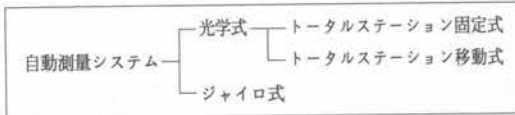 自動測量システム
光学式
トータルステーション固定式
トータルステーション移動式
ジャイロ式